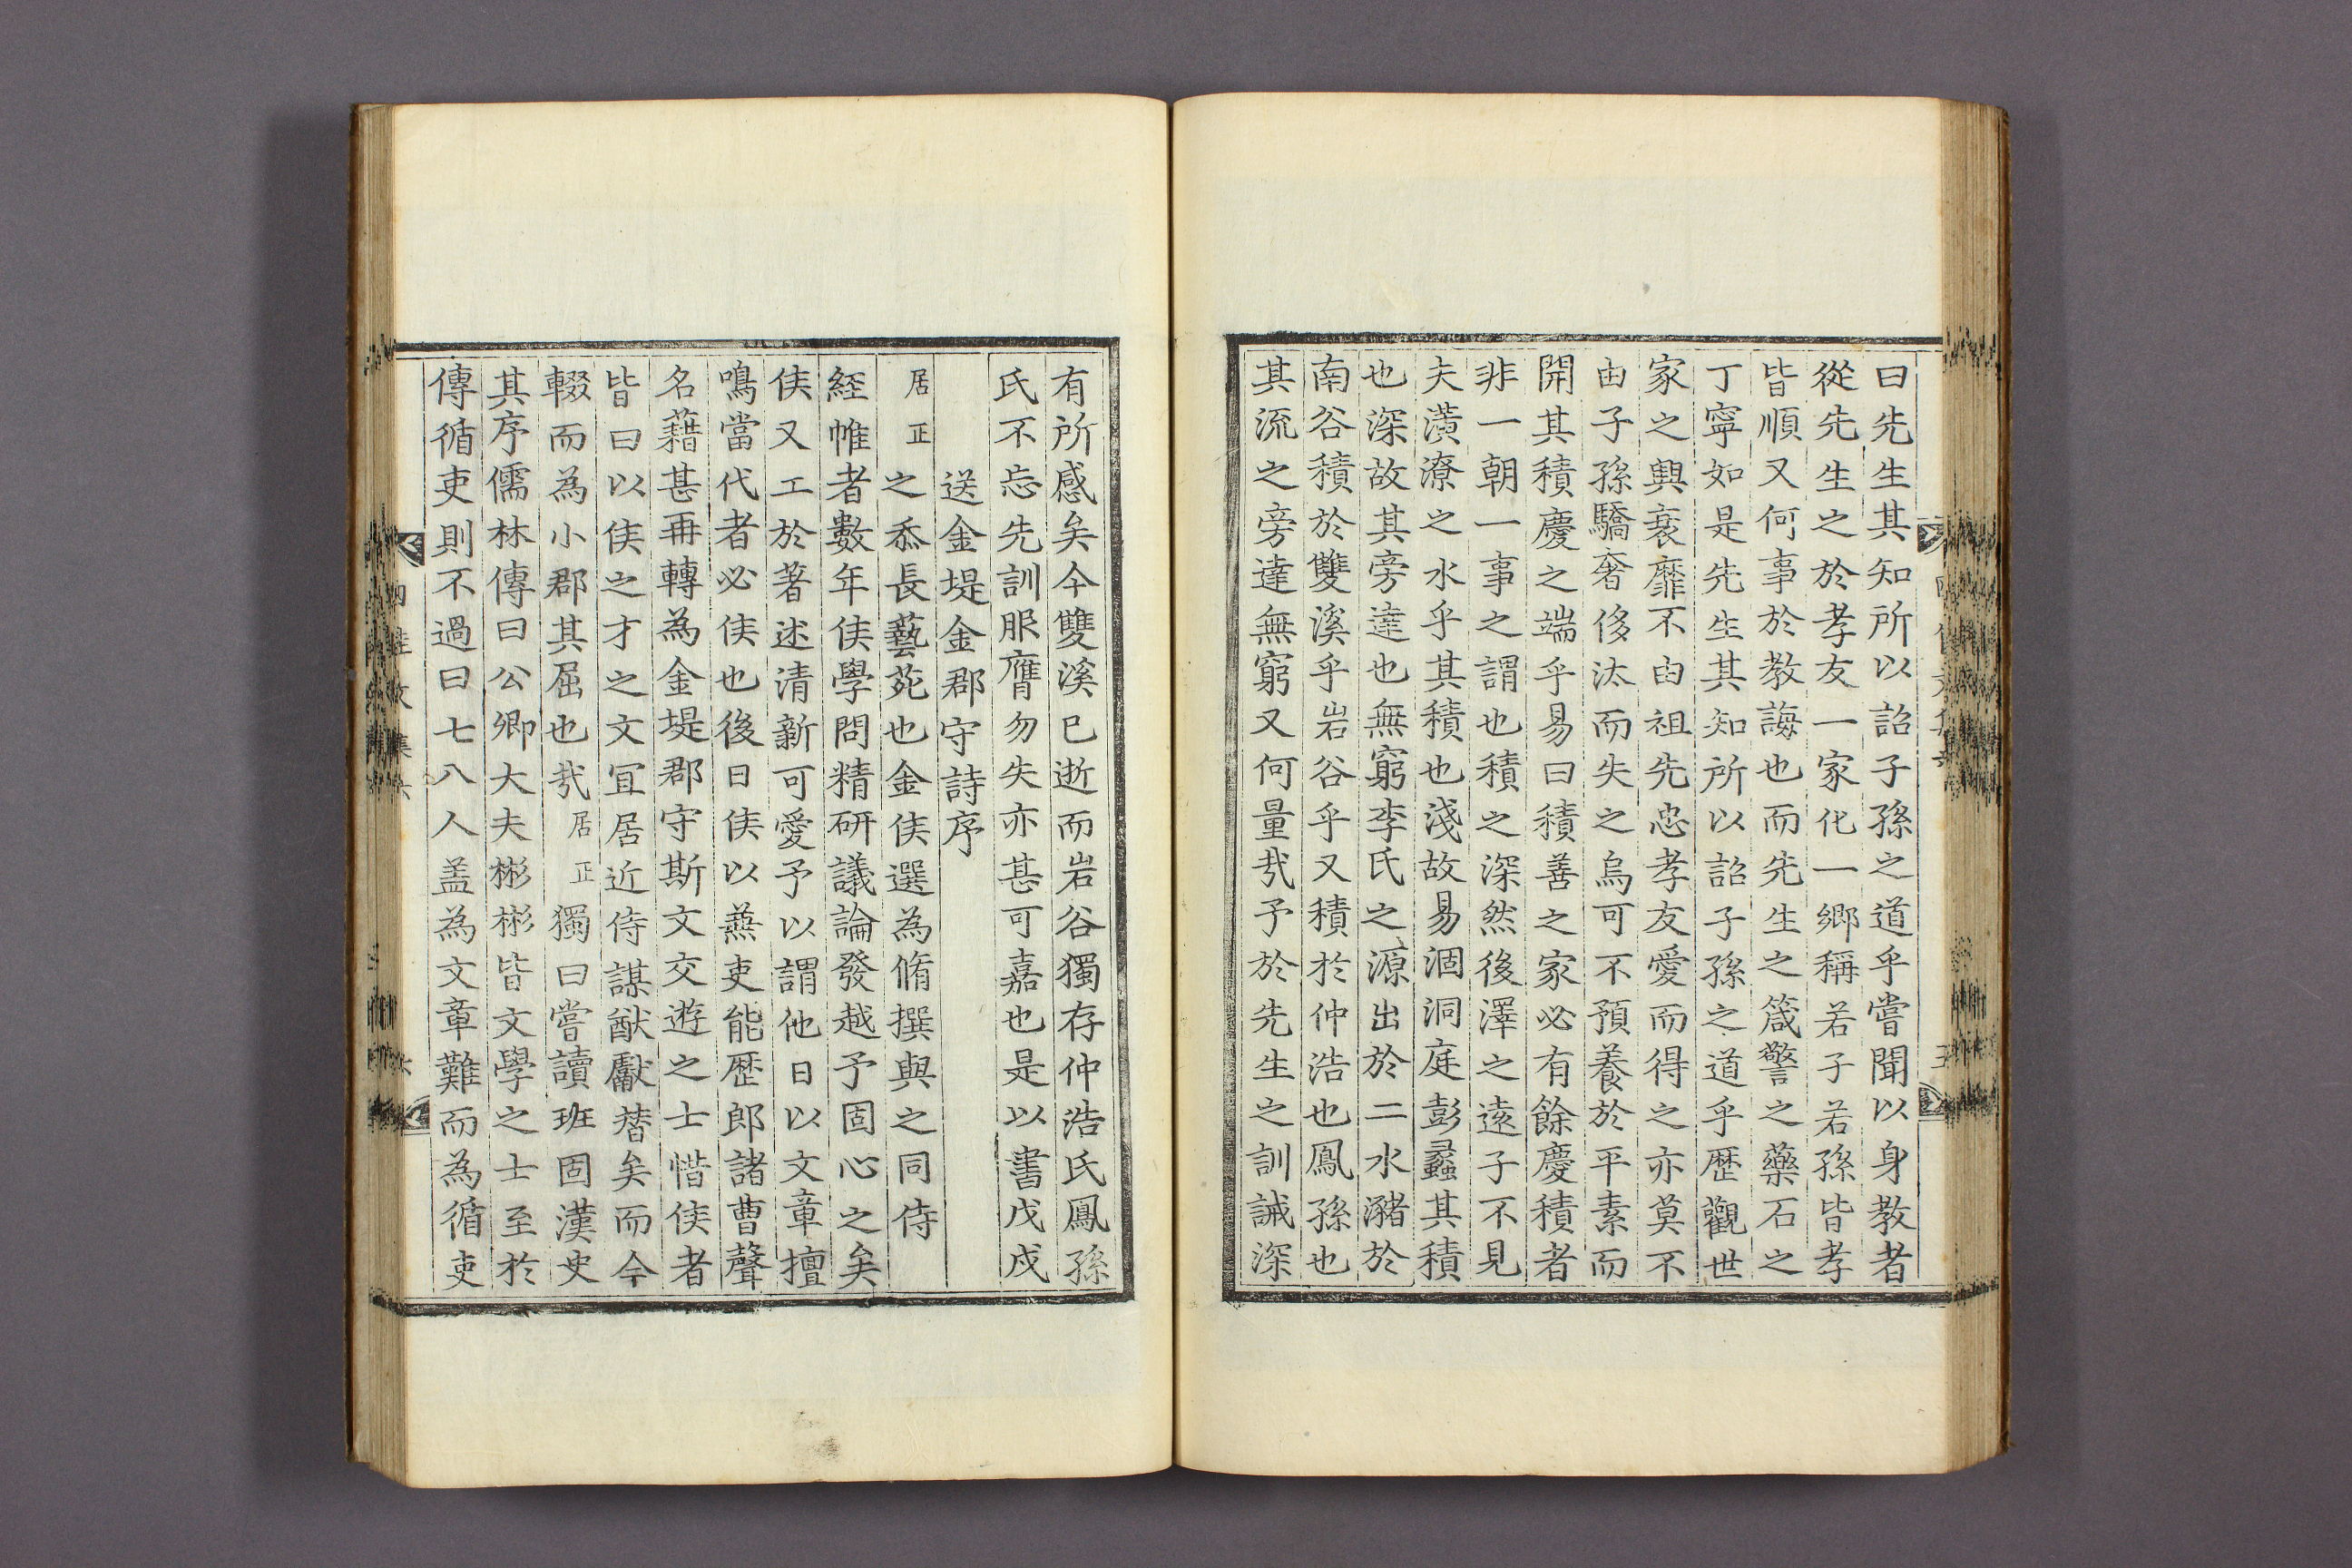 曰先生其知所以詔子孫之道乎嘗聞以身教者
從先生之於孝友一家化一鄉稱若子若孫皆孝
皆順又何事於教誨也而先生之箴警之藥石之
丁寧如是先生其知所以詔子孫之道乎歷觀世
家之興衰靡不由祖先忠孝友愛而得之亦莫不
由子孫驕奢侈汰而失之烏可不預養於平素而
開其積慶之端乎易曰積善之家必有餘慶積者
非一朝一事之謂也積之深然後澤之遠子不見
夫潢潦之水乎其積也淺故易涸洞庭彭蠡其積
也深故其旁達也無窮李氏之源出於二水瀦於
南谷積於雙溪乎岩谷乎又積於仲浩也鳳孫也
其流之旁達無窮又何量㢤予於先生之訓誡深
有所感矣今雙溪已逝而岩谷獨存仲浩氏鳳孫
氏不忘先訓服膺勿失亦甚可嘉也是以書戊戍
送金堤金郡守詩序
居正之忝長藝苑也金侯選為脩撰與之同侍
経帷者數年侯學問精研議論發越予固心之矣
侯又工於著述清新可愛予以謂他日以文章擅
鳴當代者必侯也後日侯以蕪吏能歷郎諸曹聲
名藉甚再轉為金堤郡守斯文交遊之士惜侯者
皆曰以侯之才之文冝居近侍謀猷獻替矣而今
輟而為小郡其屈也㢤居正獨曰嘗讀班固漢史
其序儒林傳曰公卿大夫彬彬皆文學之士至於
傳循吏則不過曰七八人盖為文章難而為循吏